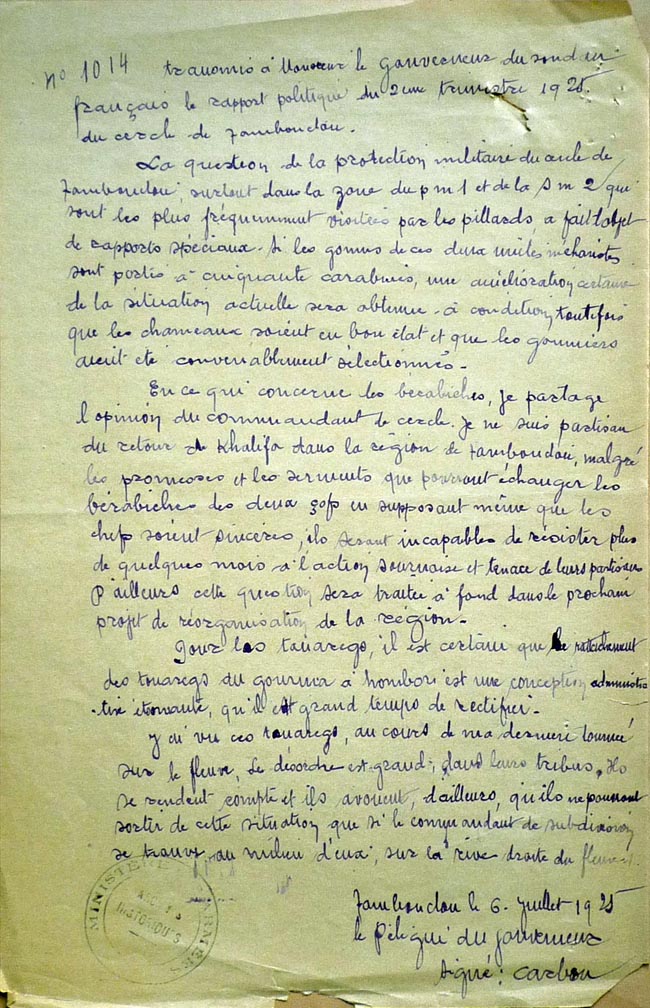 N° 1014 transmis à Monsieur le Gouverneur du soudan
français le rapport politique du 2ème trimestre 1925.
du cercle de Tamboudou.
La question de la protection militaire du cercle de
Tamboudou, surtout dans la zone du p m 1 et de la S m 2 qui
sont les plus fréquemment visitées par les pillards, a fait l'objet
de rapports spéciaux. Si les goums de ces deux unités méharistes
sont portés à cinquante carabines, une amélioration certaine
de la situation actuelle sera obtenue. à condition toutefois
que les chameaux soient en bon état et que les goumiers
aient été convenablement sélectionnés.
En ce qui concerne les bérabiches, je partage
l'opinion du commandant de cercle. je ne suis partisan
du retour de Khalifa dans la région de Tamboudou, malgré
les promesses et les serments que pourront échanger les
bérabiches des deux çofs en supposant même que les
chefs soient sincères, ils seront incapables de résister plus
de quelques mois à l'action sournoise et tenace de leurs partisans
D'ailleurs cette question sera traitée à fond dans le prochain
projet de réorganisation de la région.
Pour les touaregs, il est certain que le rattachement
des touaregs du gourma à hombori est une conception administra
-tive étonnante, qu'il est grand temps de rectifier.
J'ai vu ces touaregs, au cours de ma dernière tournée
sur le fleuve. Le désordre est grand, dans leurs tribus. Ils
se rendent compte et ils avouent, d'ailleurs, qu'ils ne pourront
sortir de cette situation que si le commandant de subdivision
se trouve, au milieu d'eux, sur la rive droite du fleuve.
Tamboudou le 6. juillet 1925
le Délégué du gouverneur
Signé: Carbou
MINISTERE ARMEES
HISTORIQUES